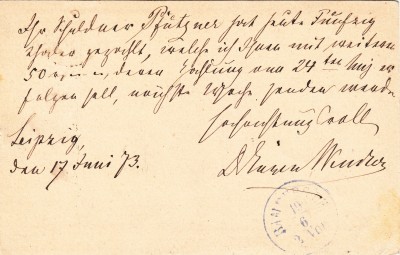 Ihr Schuldner Pfützner hat heute Fünfzig
Thaler gezahlt, welche ich Ihnen mit weitern
50 deren Zahlung am 24ten huj. er-
folgen soll, nächste Woche senden werde.
Hochachtungsvoll
Leipzig,
den 17 Juni 73.